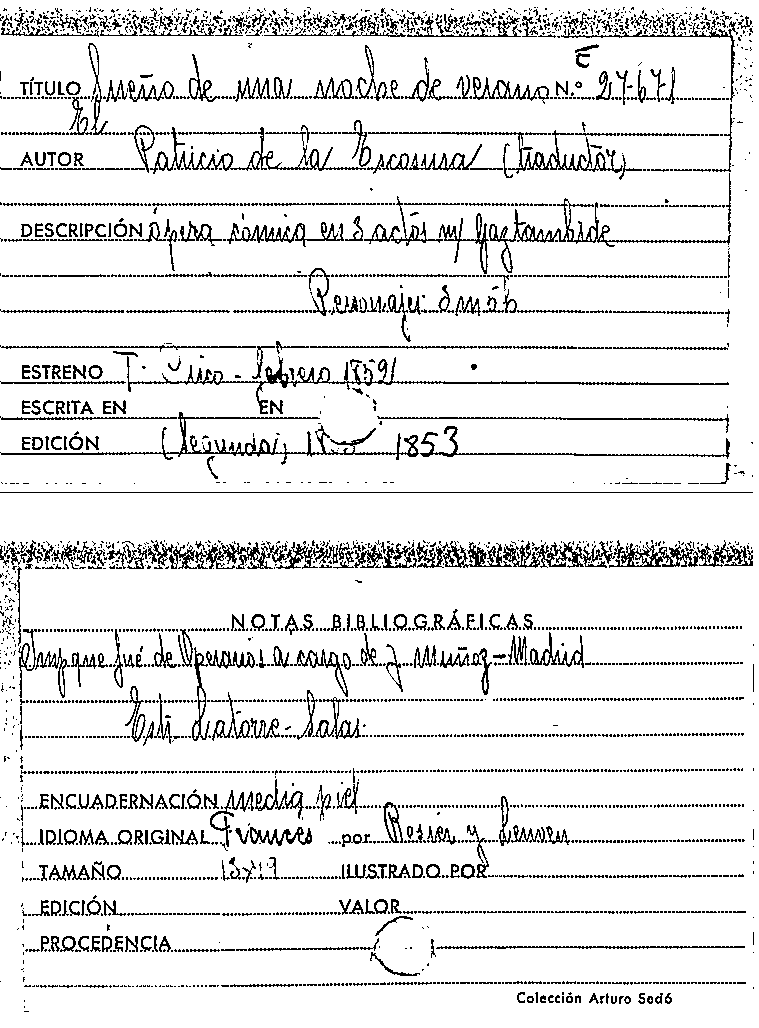 TÍTULO Sueño de una noche de verano N.º E 27-671
El
AUTOR Patricio de la Escosura (traductor)
DESCRIPCIÓN ópera cómica en 3 actos m/ Gaztambide
Personajes 3 m 5 h
ESTRENO T. Circo - febrero 1852
ESCRITA EN EN
EDICIÓN (Segunda) 1853
NOTAS BIBLIOGRÁFICAS
Imp que fué de Operarios a cargo de J Muñoz - Madrid
Est. Latorre - Salas
ENCUADERNACIÓN media piel
IDIOMA ORIGINAL Francés por Rosier y Leuven
TAMAÑO 13x19 ILUSTRADO POR
EDICIÓN VALOR
PROCEDENCIA
Colección Arturo Sedó